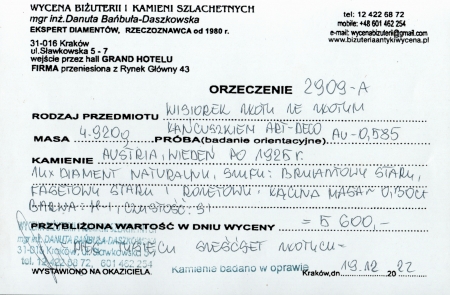 WYCENA BIŻUTERII I KAMIENI SZLACHETNYCH
mgr inż. Danuta Bańbuła-Daszkowska
EKSPERT DIAMENTÓW, RZECZOZNAWCA od 1980 r.
31-016 Kraków
ul.Sławkowska 5 - 7
wejście przez hall GRAND HOTELU
FIRMA przeniesiona z Rynek Główny 43
tel. 12 422 68 72
mobile: +48 601 462 254
e-mail: wycenabizuterii@gmail.com
www.bizuteriaantykiwycena.pl
ORZECZENIE 2909-A
RODZAJ PRZEDMIOTU WISIOREK ZŁOTY ZE ZŁOTYM
ŁAŃCUSZKIEM ART-DECO
MASA 4.920g PRÓBA(badanie orientacyjne) AU-0,585
AUSTRIA, WIEDEŃ PO 1925 r.
KAMIENIE
DIAMENT NATURALNY, SZLIFU: BRYLANTOWY STARY,
FASETOWY STARY I ROZETOWY: ŁĄCZNA MASA
BARWA: H-I, CZYSTOŚĆ:
PRZYBLIŻONA WARTOŚĆ W DNIU WYCENY = 5 600,-
PIĘĆ TYSIĘCY SZEŚĆSET ZŁOTYCH
mgr inż. DANUTA BAŃBUŁA-DASZKOWSKA
31-016 Kraków, ul. Sławkowska
tel. 12 422 68 72, 601 462 254
WYSTAWIONO NA OKAZICIELA.
Kamienie badano w oprawie
Kraków, 19.12 22